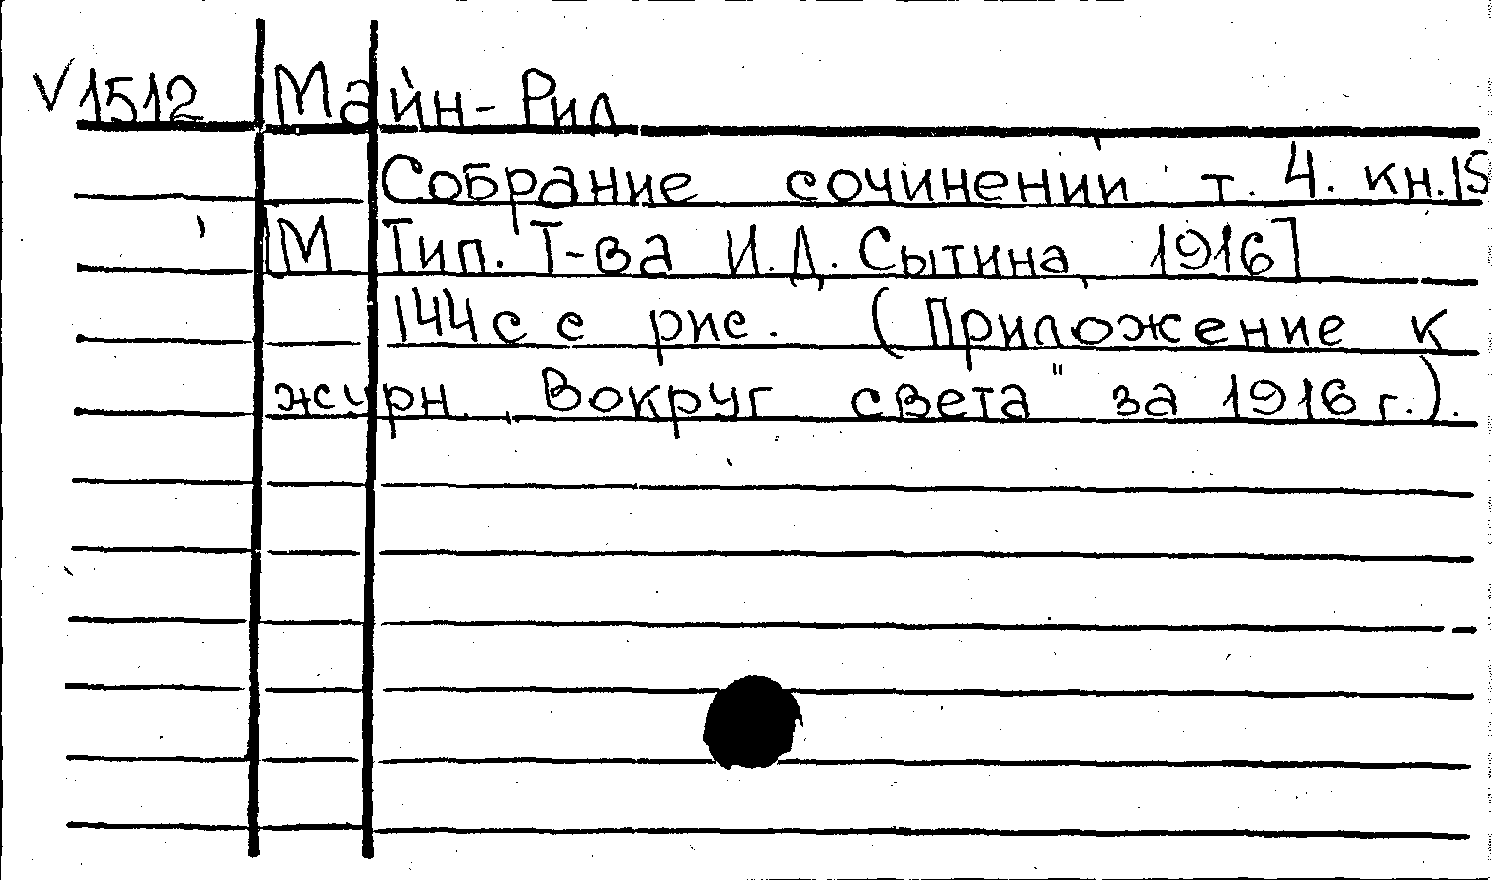 V 1512 Майн-Рид
Собрание сочинений т. 4. кн. 15
[М Тип. Т-ва И.Д. Сытина, 1916]
144 с с рис. (Приложение к
журн. „Вокруг света" за 1916 г.).